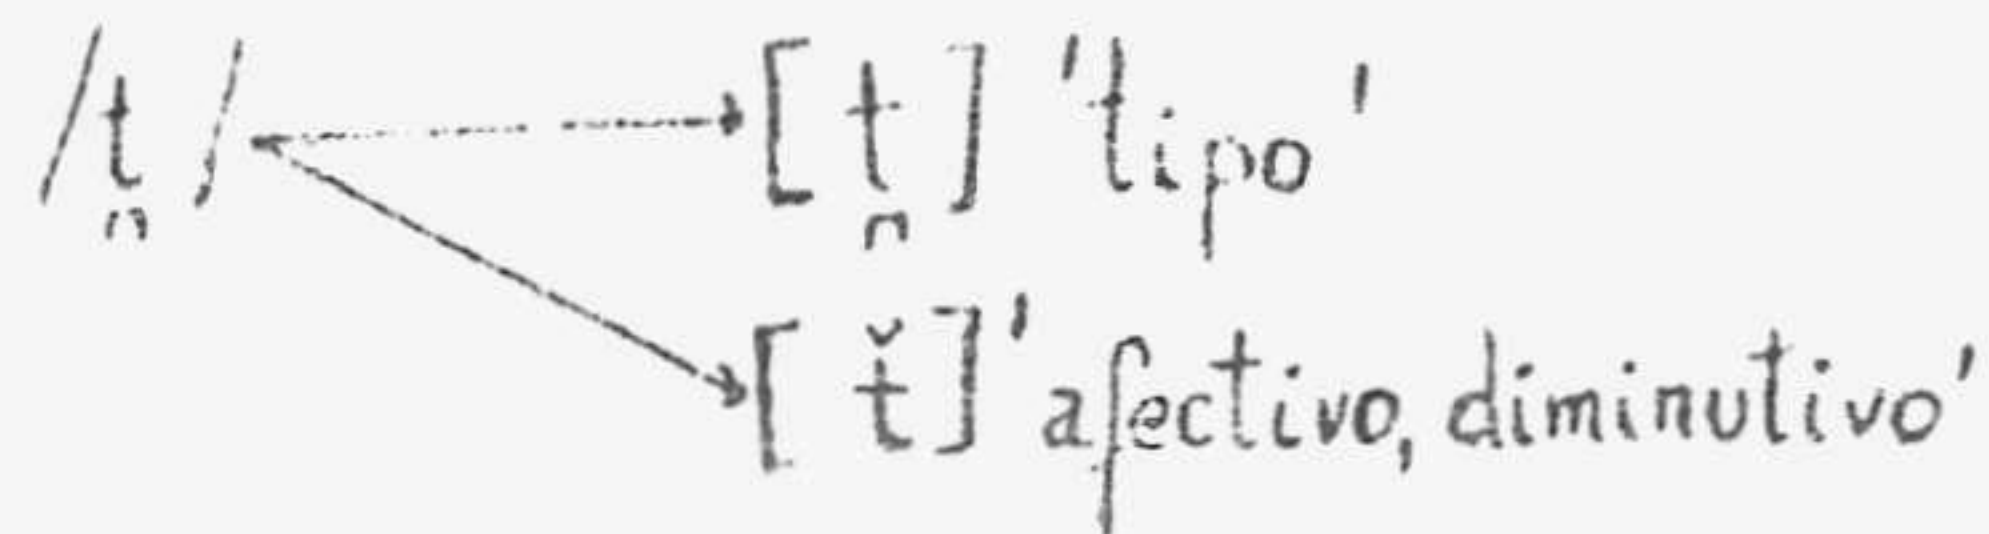 /t̪/ [t̪] 'tipo'
[ť] 'afectivo, diminutivo'